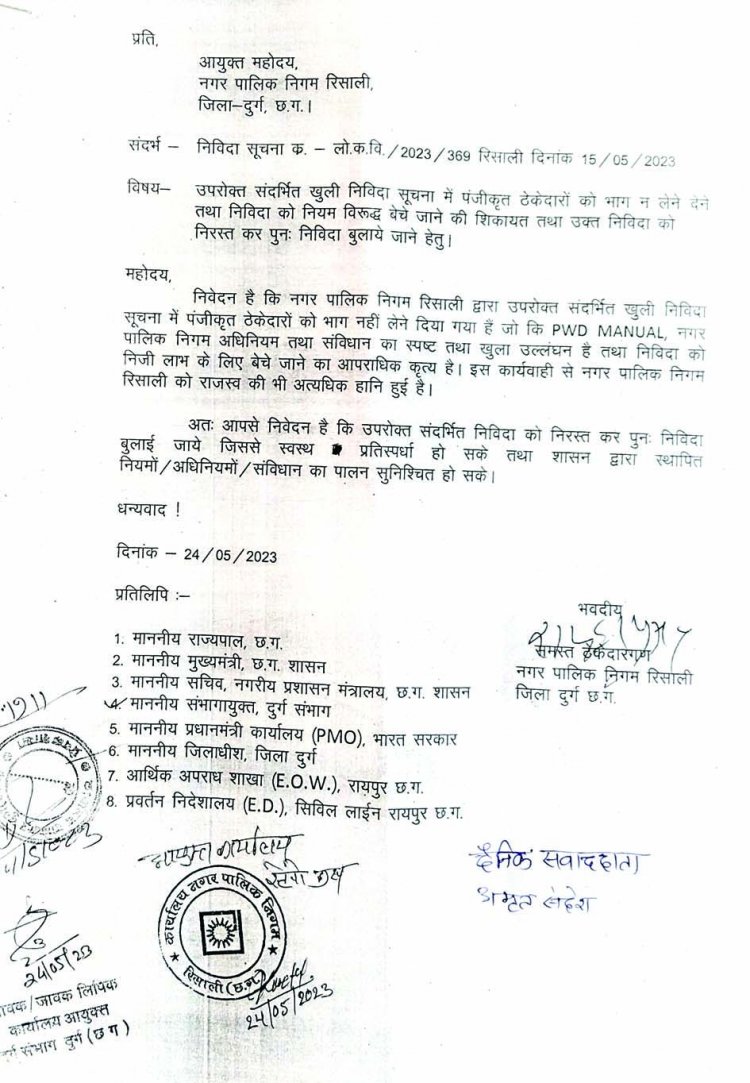 प्रति,
आयुक्त महोदय,
नगर पालिक निगम रिसाली,
जिला–दुर्ग, छ.ग.।
संदर्भ – निविदा सूचना क्र. – लो.क.वि./2023/369 रिसाली दिनांक 15/05/2023
विषय– उपरोक्त संदर्भित खुली निविदा सूचना में पंजीकृत ठेकेदारों को भाग न लेने देने
तथा निविदा को नियम विरूद्ध बेचे जाने की शिकायत तथा उक्त निविदा को
निरस्त कर पुनः निविदा बुलाये जाने हेतु।
महोदय,
निवेदन है कि नगर पालिक निगम रिसाली द्वारा उपरोक्त संदर्भित खुली निविदा
सूचना में पंजीकृत ठेकेदारों को भाग नहीं लेने दिया गया हैं जो कि PWD MANUAL, नगर
पालिक निगम अधिनियम तथा संविधान का स्पष्ट तथा खुला उल्लंघन है तथा निविदा को
निजी लाभ के लिए बेचे जाने का आपराधिक कृत्य है। इस कार्यवाही से नगर पालिक निगम
रिसाली को राजस्व की भी अत्यधिक हानि हुई है।
अतः आपसे निवेदन है कि उपरोक्त संदर्भित निविदा को निरस्त कर पुनः निविदा
बुलाई जाये जिससे स्वस्थ प्रतिस्पर्धा हो सके तथा शासन द्वारा स्थापित
नियमों/अधिनियमों/संविधान का पालन सुनिश्चित हो सके।
धन्यवाद !
दिनांक – 24/05/2023
प्रतिलिपि :–
भवदीय
समस्त ठेकेदारगण
नगर पालिक निगम रिसाली
जिला दुर्ग छ.ग.
1. माननीय राज्यपाल, छ.ग.
2. माननीय मुख्यमंत्री, छ.ग. शासन
3. माननीय सचिव, नगरीय प्रशासन मंत्रालय, छ.ग. शासन
4. माननीय संभागायुक्त, दुर्ग संभाग
5. माननीय प्रधानमंत्री कार्यालय (PMO), भारत सरकार
6. माननीय जिलाधीश, जिला दुर्ग
7. आर्थिक अपराध शाखा (E.O.W.), रायपुर छ.ग.
8. प्रवर्तन निदेशालय (E.D.), सिविल लाईन रायपुर छ.ग.
दैनिक सवाददाता
अमृत संदेश
कार्यालय नगर पालिक निगम
रिसाली (छ.ग.)
24/05/2023
24/05/23
जावक लिपिक
कार्यालय आयुक्त
संभाग दुर्ग (छ ग)